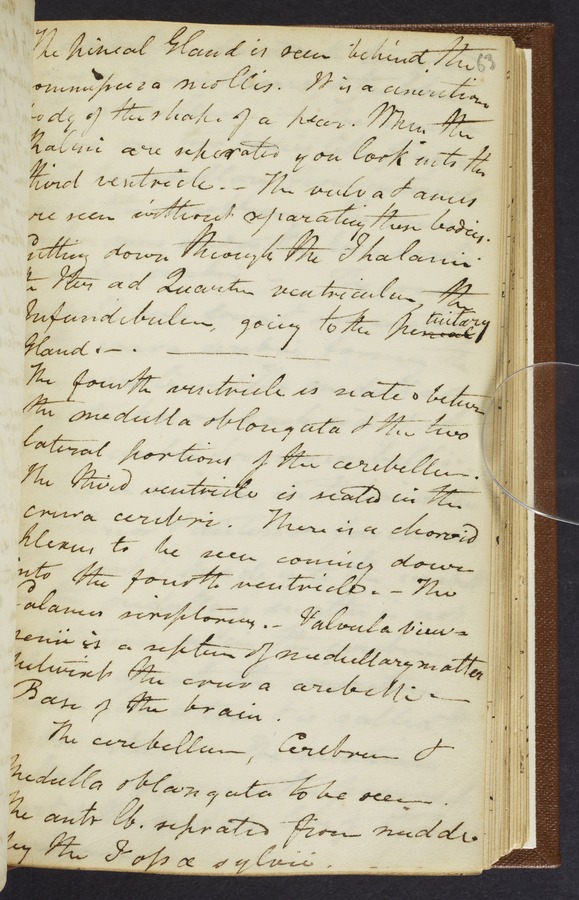 The pineal Gland is seen behind the 63
ommissura mollis. It is a cineritious
body of the shape of a pear. When the
Thalami are seperated you look into the
third ventricle. – The vulva & anus
are seen without separating these bodies.
Cutting down through the Thalami
Iter ad Quartum ventriculum, the
Infundibulum, going to the Pineal tuitary
Gland. –.
The fourth ventricle is seated betwn
the medulla oblongata & the two
lateral portions of the cerebellum.
The third ventricle is seated in the
crura cerebri. There is a choroid
plexus to be seen coming down
into the fourth ventricle. – The
Calamus scriptorius. – Valvula View=
senii is a septum of medullary matter
between the crura cerebelli –
Base of the brain.
The cerebellum, Cerebrum &
Medulla oblongata to be seen.
The antr lb. seprated from middle
by the Fossa sylvii.